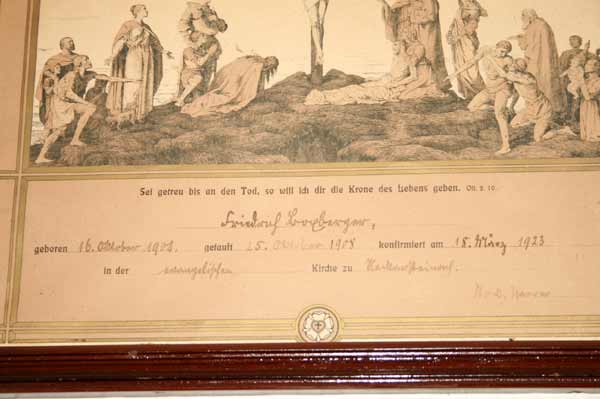 Sei getreu bis an den Tod, so will ich dir die Krone des Lebens geben. Off. 2. 10.
Friedrich Boxberger,
geboren 16. Oktober 1908. getauft 25. Oktober 1908 konfirmiert am 18. März 1923
in der evangelischen Kirche zu Neckarsteinach.